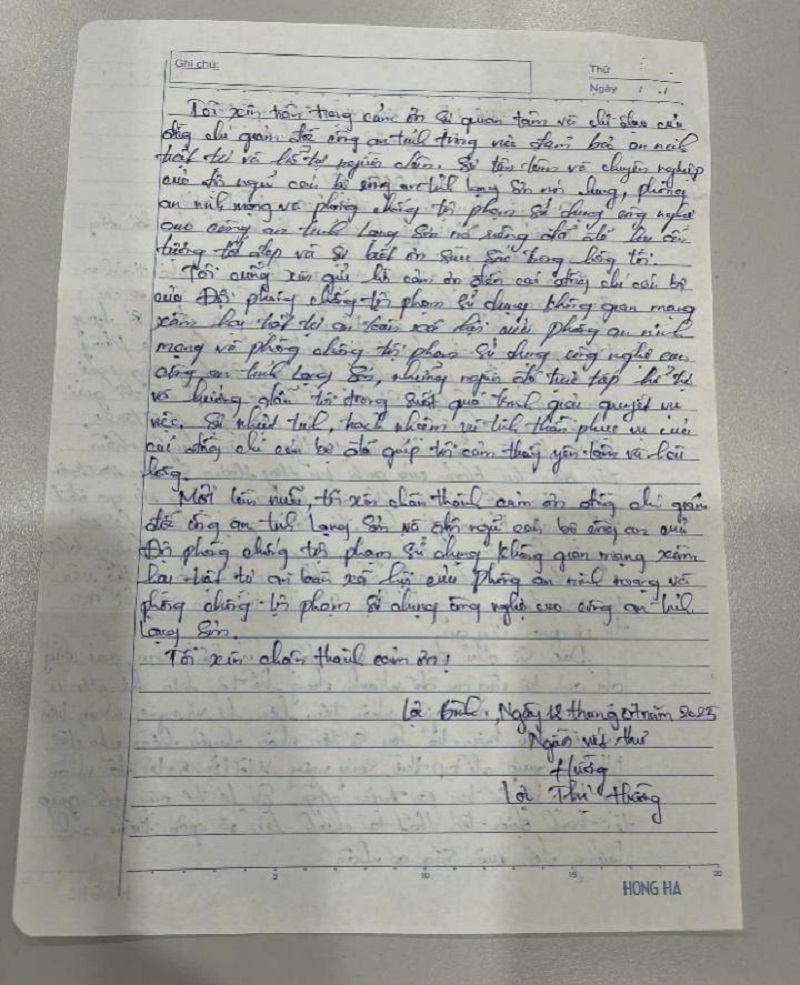 Ghi chú:
Thứ
Ngày
Tôi xin trân trọng cảm ơn sự quan tâm và chỉ đạo của
đồng chí giám đốc công an tỉnh trong việc đảm bảo an ninh
trật tự và hỗ trợ người dân. Sự tận tâm và chuyên nghiệp
của đội ngũ cán bộ công an tỉnh Lạng Sơn nói chung, phòng
an ninh mạng và phòng chống tội phạm sử dụng công nghệ
cao công an tỉnh Lạng Sơn nói riêng đã để lại ấn
tượng tốt đẹp và sự biết ơn sâu sắc trong lòng tôi.
Tôi cũng xin gửi lời cảm ơn đến các đồng chí cán bộ
của Đội phòng chống tội phạm sử dụng không gian mạng
xâm hại trật tự an toàn xã hội của phòng an ninh
mạng và phòng chống tội phạm sử dụng công nghệ cao
công an tỉnh Lạng Sơn, những người đã trực tiếp hỗ trợ
và hướng dẫn tôi trong suốt quá trình giải quyết vụ
việc. Sự nhiệt tình, trách nhiệm và tinh thần phục vụ của
các đồng chí cán bộ đã giúp tôi cảm thấy yên tâm và hài
lòng.
Một lần nữa, tôi xin chân thành cảm ơn đồng chí giám
đốc công an tỉnh Lạng Sơn và đội ngũ cán bộ công an của
Đội phòng chống tội phạm sử dụng không gian mạng xâm
hại trật tự an toàn xã hội của phòng an ninh mạng và
phòng chống tội phạm sử dụng công nghệ cao công an tỉnh
Lạng Sơn.
Tôi xin chân thành cảm ơn!
Lộc Bình, Ngày 12 tháng năm 2025
Người viết thư
Hường
Thị Hường
5 10 15 20
HONG HA